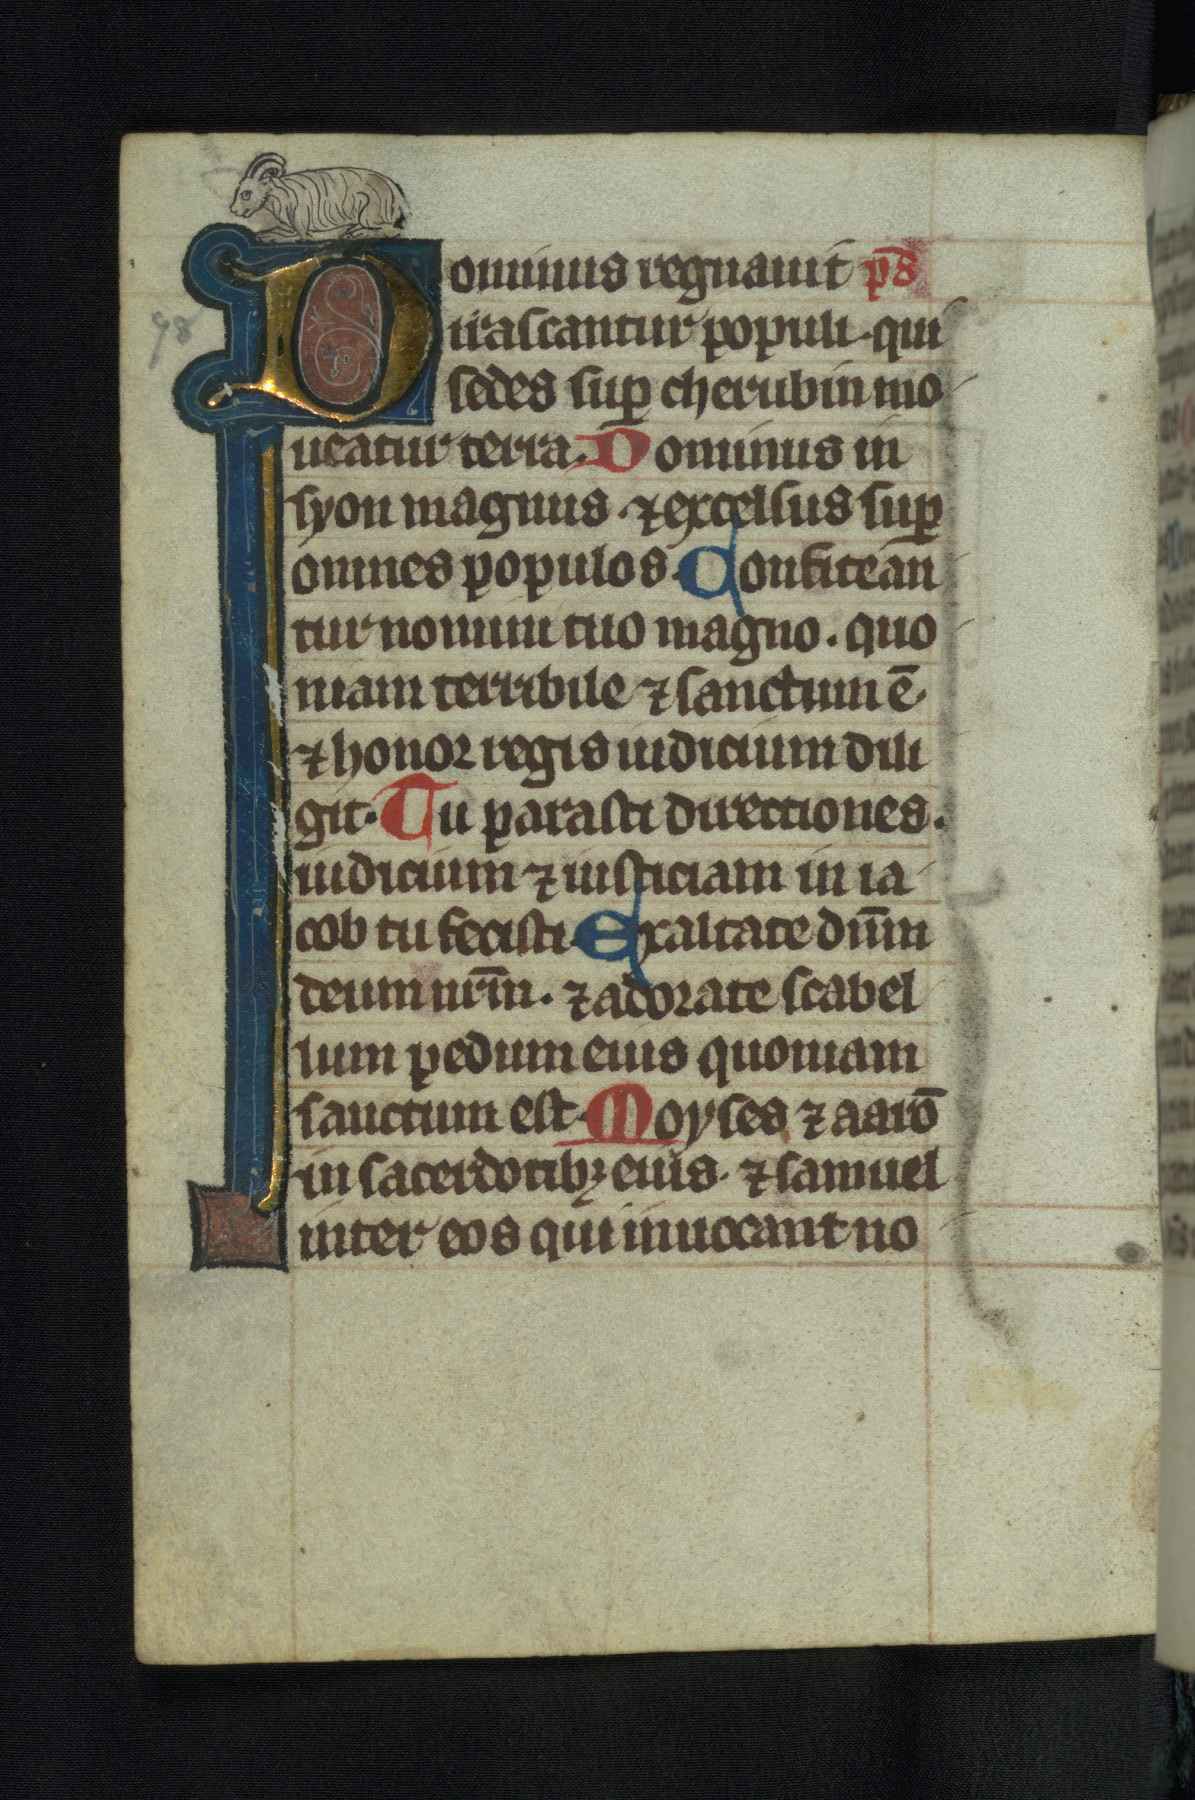 98
Dominus regnauit p̄s
irascantur populi · qui
sedes sup̲ cherubin mo
ueatur terra. Dominus in
syon magnus · ⁊ excelsus sup̲
omnes populos. Confitean
tur nomini tuo magno . quo
niam terribile ⁊ sanctum ē
⁊ honor regis iudicium dili
git. Tu parasti directiones.
iudicium ⁊ iusticiam in ia
cob tu fecisti. Exaltate dn̄m
deum nr̄m . ⁊ adorate scabel
lum pedum eius quoniam
sanctum est. Moyses ⁊ aarō
in sacerdotibꝫ eius . ⁊ samuel
inter eos qui inuocant no